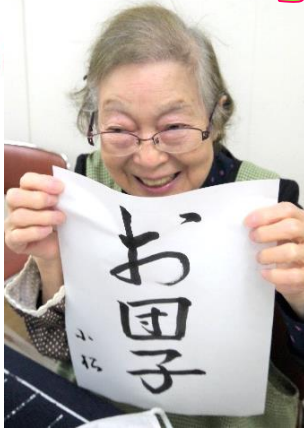 お団子
小松